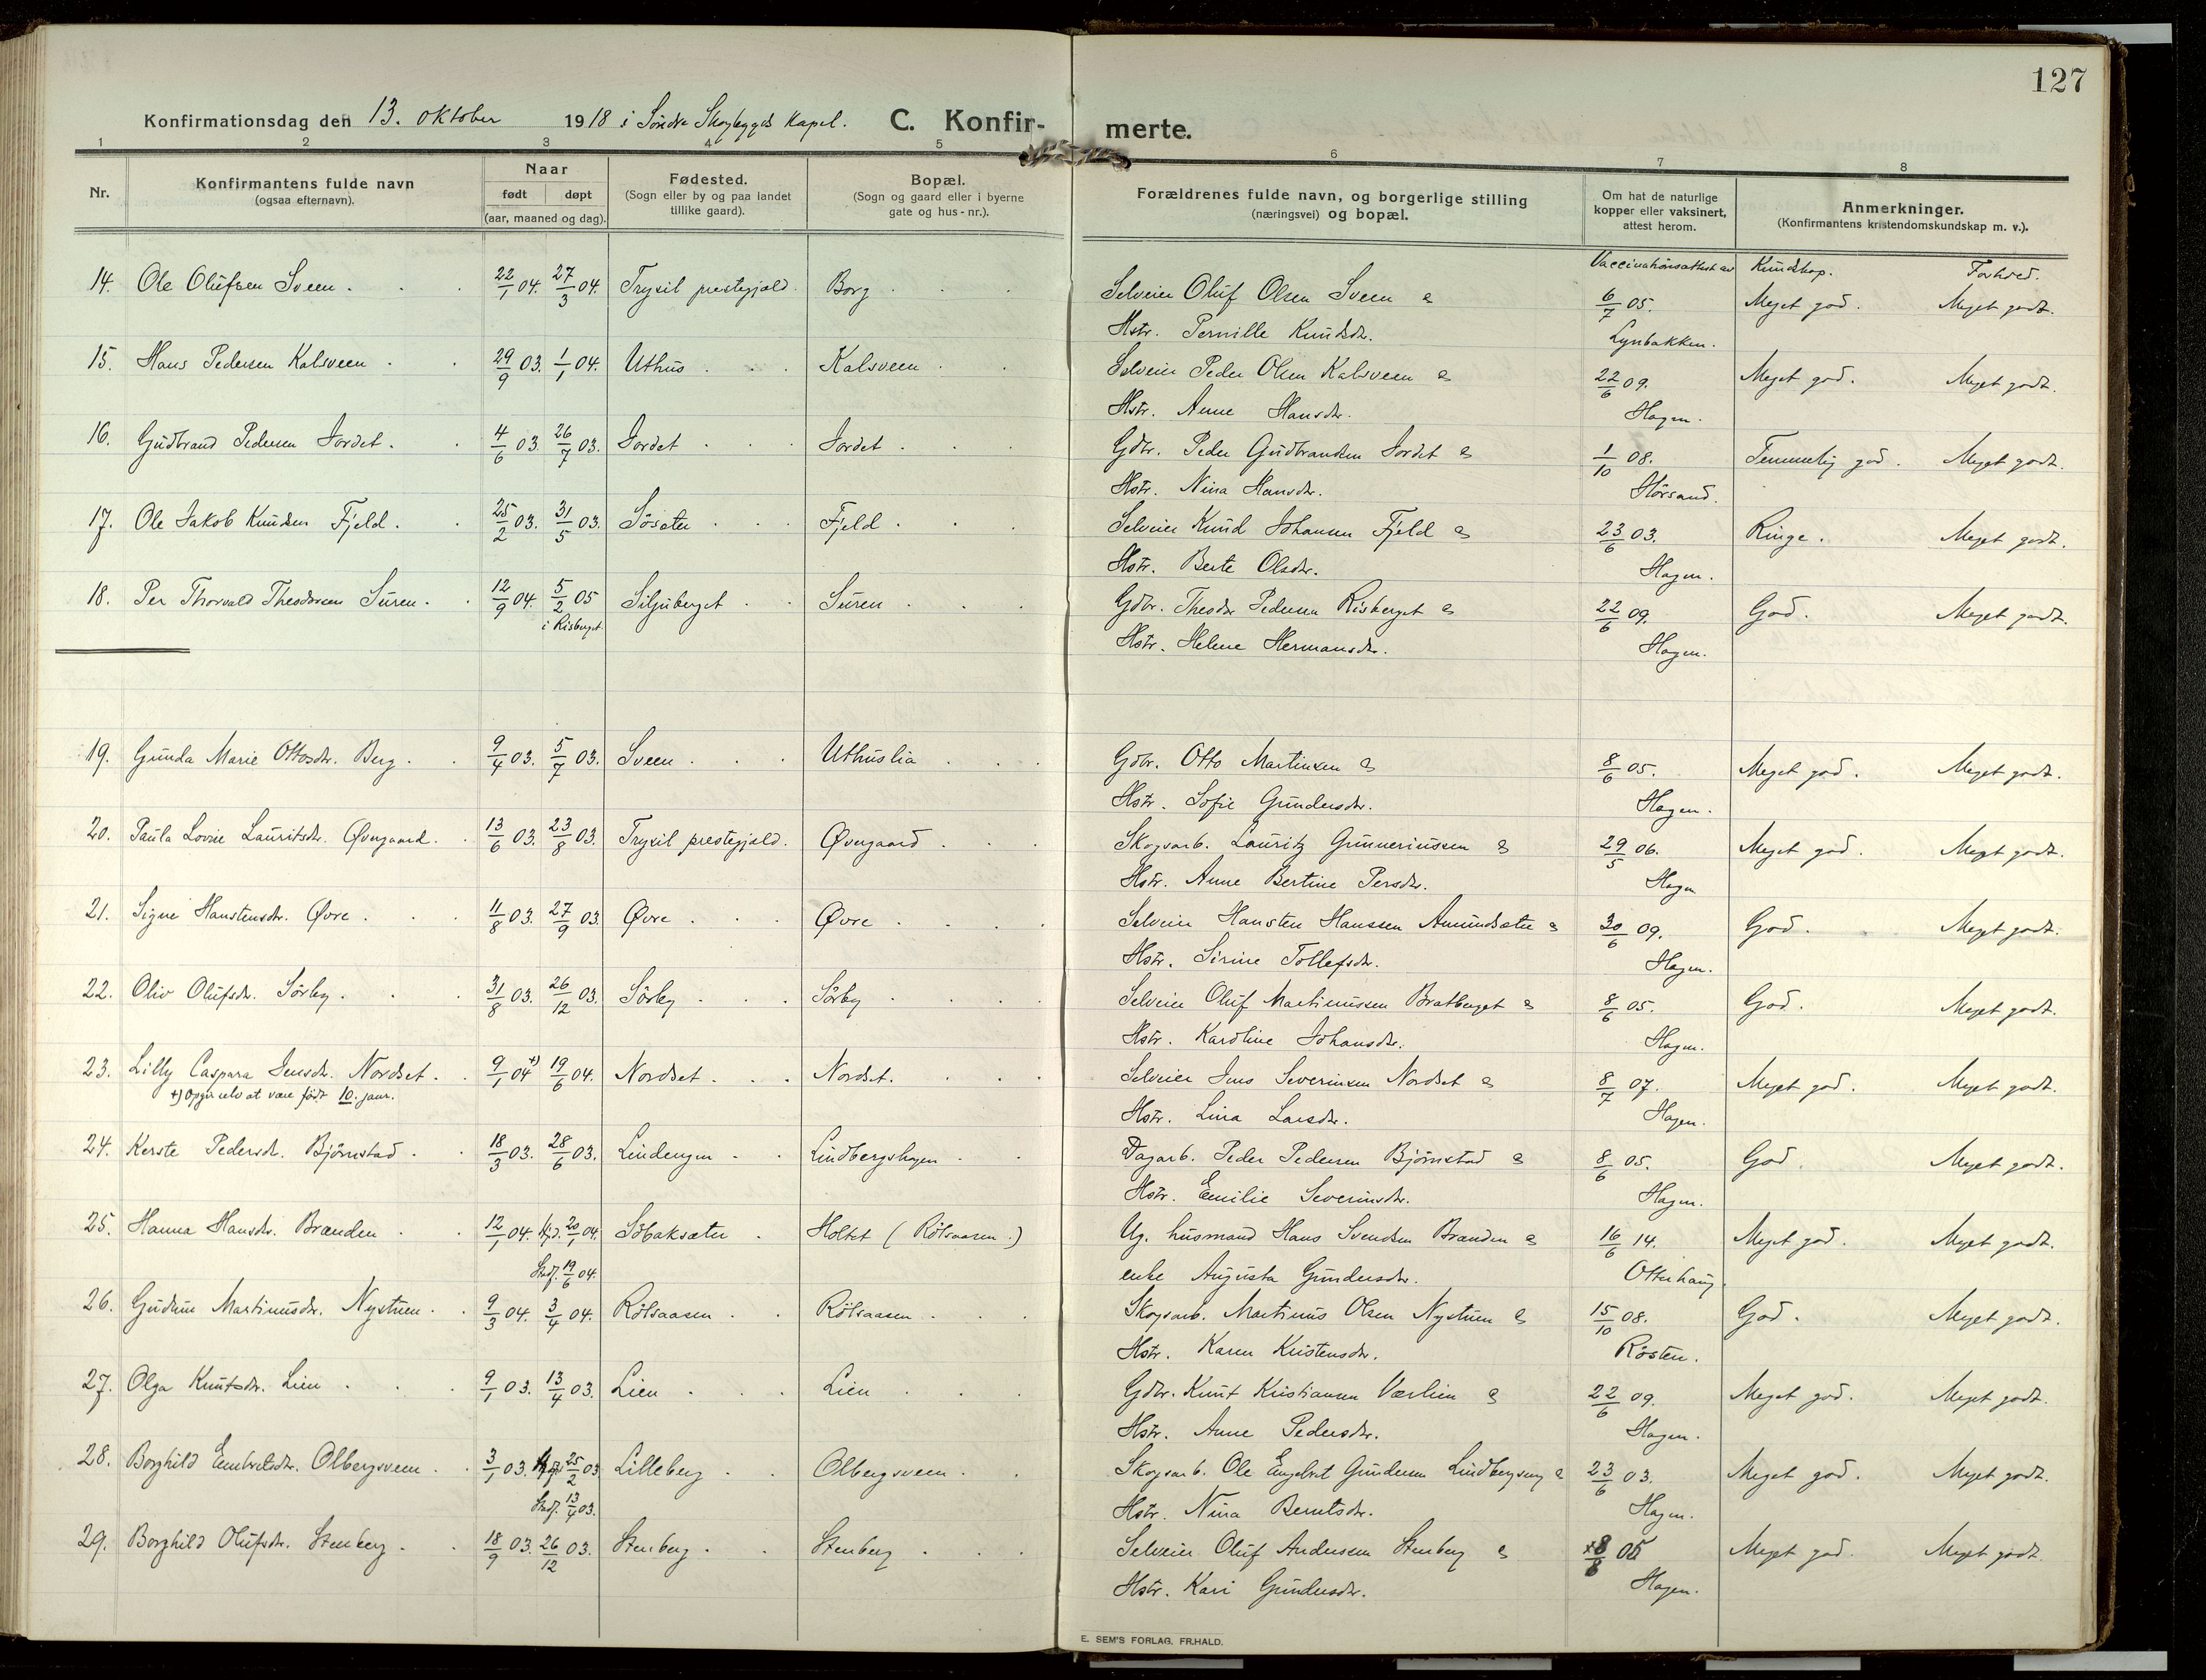 127
Konfirmationsdag den 13. oktober 1918 i Søndre Skogbygds Kapel. C. Konfir-merte.
1 2 3 4 5 6 7 8
Nr.
Konfirmantens fulde navn
(ogsaa efternavn).
Naar
født døpt
(aar, maaned og dag).
Fødested.
(Sogn eller by og paa landet
tillike gaard).
Bopæl.
(Sogn og gaard eller i byerne
gate og hus-nr.).
Forældrenes fulde navn, og borgerlige stilling
(næringsvei) og bopæl.
Om hat de naturlige
kopper eller vaksinert,
attest herom.
Anmerkninger.
(Konfirmantens kristendomskundskap m. v.).
Vaccinationsattest av Kundskap. Forhold.
14. Ole Olufsen Sveen. 22/1 04. 27/3 04. Trysil prestegjæld. Borg Selveier Oluf Olsen Sveen & 6/7 05. Meget god. Meget godt.
Hstr. Pernille Knudsdr. Lynbakken.
15. Hans Pedersen Kalsveen 29/9 03. 1/1 04. Uthus Kalsveen Selveier Peder Olsen Kalsveen & 22/6 09. Meget god. Meget godt.
Hstr. Anne Hansdr. Hagen.
16. Gudbrand Pedersen Jordet. 4/6 03. 26/7 03. Jordet Jordet Gdbr. Peder Gudbrandsen Jordet & 1/10 08. Temmelig god. Meget godt.
Hstr. Nina Hansdr. Hörsand.
17. Ole Jakob Knudsen Fjeld. 25/2 03. 31/5 03. Søsæter Fjeld Selveier Knud Johansen Fjeld & 23/6 03. Ringe. Meget godt.
Hstr. Berte Olsdr. Hagen.
18. Per Thorvald Theodorsen Suren. 12/9 04. 5/2 05 Siljuberget Suren Gdbr. Theodor Pedersen Risberget & 22/6 09. God. Meget godt.
i Risberget
Hstr. Helene Hermansdr. Hagen.
19. Gunda Marie Ottosdr. Berg. 9/4 03. 5/7 03. Sveen Uthuslia Gdbr. Otto Martinsen & 8/6 05. Meget god. Meget godt.
Hstr. Sofie Gundersdr. Hagen.
20. Paula Lovise Lauritsdr. Øvergaard. 13/6 03. 23/8 03. Trysil prestegjæld. Øvergaard Skogsarb. Lauritz Gunneriussen & 29/5 06. Meget god. Meget godt.
Hstr. Anne Bertine Persdr. Hagen
21. Signe Hanstensdr. Øvre 11/8 03. 27/9 03. Øvre Øvre Selveier Hansten Hanssen Amundsæter & 30/6 09. God. Meget godt.
Hstr. Sirine Tollefsdr. Hagen.
22. Oliv Olufsdr. Sørby. 31/8 03. 26/12 03. Sørby Sørby Selveier Oluf Martinussen Bratberget & 8/6 05. God. Meget godt.
Hstr. Karoline Johansdr. Hagen.
23. Lilly Caspara Jensdr. Nordset. 9/1 04 +) 19/6 04. Nordset Nordset. Selveier Jens Severinsen Nordset & 8/7 07. Meget god. Meget godt.
+) Opgir selv at være født 10. janr.
Hstr. Lina Larsdr. Hagen.
24. Kerste Pedersdr. Bjørnstad 18/3 03. 28/6 03. Lindengen Lindbergshagen Dagarb. Peder Pedersen Bjørnstad & 8/6 05. God. Meget godt.
Hstr. Emilie Severinsdr. Hagen.
25. Hanna Hansdr. Brænden 12/1 04. Hjd. 20/1 04. Söbaksæter Holtet (Rötsaasen.) Ug. husmand Hans Svendsen Brænden & 16/6 14. Meget god. Meget godt.
Stadf. 19/6 04.
enke Augusta Gundersdr. Otterhaug.
26. Gudrun Martinusdr. Nystuen 9/3 04. 3/4 04. Rötsaasen Rötsaasen Skogsarb. Martinus Olsen Nystuen & 15/10 08. God. Meget godt.
Hstr. Karen Kristensdr. Røsten.
27. Olga Knutsdr. Lien 9/1 03. 13/4 03. Lien Lien Gdbr. Knut Kristiansen Værlien & 22/6 09. Meget god. Meget godt.
Hstr. Anne Pedersdr. Hagen.
28. Borghild Embretsdr. Olbergsveen 3/1 03. 25/2 03 Lilleberg Olbergsveen Skogsarb. Ole Engebret Gundersen & 23/6 03. Meget god. Meget godt.
Stadf. 13/4 03.
Hstr. Nina Berntsdr. Hagen.
29. Borghild Olufsdr. Stenberg 18/9 03. 26/12 03. Stenberg Stenberg Selveier Oluf Andersen Stenberg & 8/6 05 Meget god. Meget godt.
Hstr. Kari Gundersdr. Hagen.
E. SEM'S FORLAG, FR.HALD.